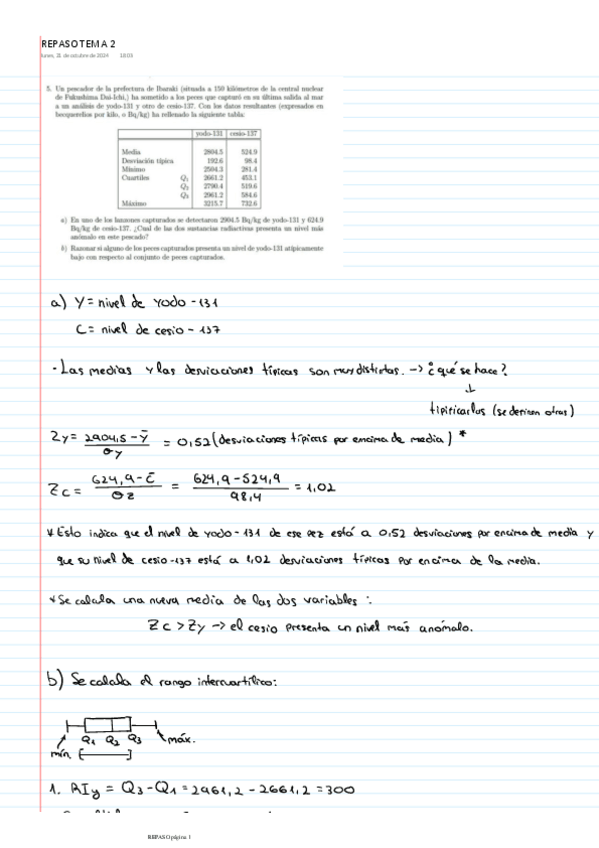 REPASO TEMA 2
lunes, 21 de octubre de 2024 18:03
5. Un pescador de la prefectura de Ibaraki (situada a 150 kilómetros de la central nuclear
de Fukushima Dai-Ichi,) ha sometido a los peces que capturó en su última salida al mar
a un análisis de yodo-131 y otro de cesio-137. Con los datos resultantes (expresados en
becquerelios por kilo, o Bq/kg) ha rellenado la siguiente tabla:
yodo-131 cesio-137
Media 2804.5 524.9
Desviación típica 192.6 98.4
Mínimo 2504.3 281.4
Cuartiles Q1 2661.2 453.1
Q2 2790.4 519.6
Q3 2961.2 584.6
Máximo 3215.7 732.6
a) En uno de los lanzones capturados se detectaron 2904.5 Bq/kg de yodo-131 y 624.9
Bq/kg de cesio-137. ¿Cual de las dos sustancias radiactivas presenta un nivel más
anómalo en este pescado?
b) Razonar si alguno de los peces capturados presenta un nivel de yodo-131 atípicamente
bajo con respecto al conjunto de peces capturados.
a) Y = nivel de yodo-131
C = nivel de cesio-137
· Las medias y las desviaciones típicas son muy distintas. -> ¿qué se hace?
↓
tipificarlas (se derivan otras)
Zy = 2904,5 - Ȳ / σy = 0,52 (desviaciones típicas por encima de media) *
Zc = 624,9 - C̄ / σz = 624,9 - 524,9 / 98,4 = 1,02
* Esto indica que el nivel de yodo-131 de ese pez está a 0,52 desviaciones por encima de media y
que su nivel de cesio-137 está a 1,02 desviaciones típicas por encima de la media.
* Se calcula una nueva media de las dos variables :
Zc > Zy -> el cesio presenta un nivel más anómalo.
b) Se calcula el rango intercuartílico:
Q1 Q2 Q3 máx.
mín.
1. RIy = Q3 - Q1 = 2961,2 - 2661,2 = 300
REPASO página 1